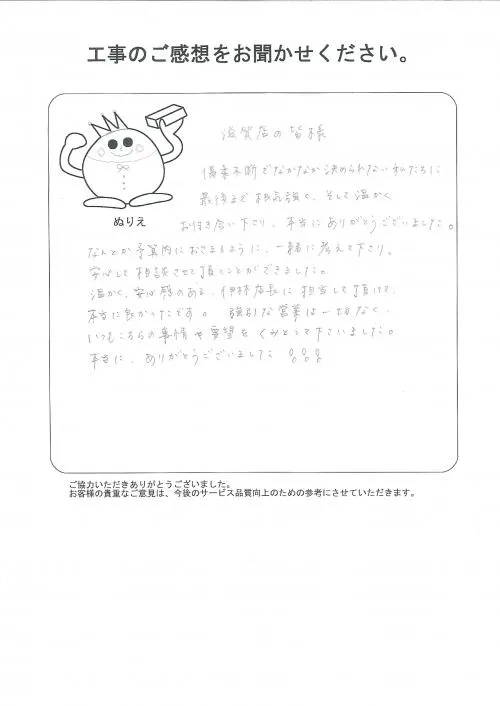 工事のご感想をお聞かせください。
滋賀店の皆様
優柔不断でなかなか決められない私たちに
最後まで 相談、そして温かく
お付き合い下さり、本当にありがとうございました。
ぬりえ
なんとか予算内におさまるように、一緒に考えて下り、
安心して相談させて頂くことができました。
温かく、安心感のある、伊林店長に担当して頂けて、
本当に良かったです。 強引な営業は一切なく、
いつもこちらの事情や要望をくみとって下さいました。
本当に、ありがとうございました
ご協力いただきありがとうございました。
お客様の貴重なご意見は、今後のサービス品質向上のための参考にさせていただきます。